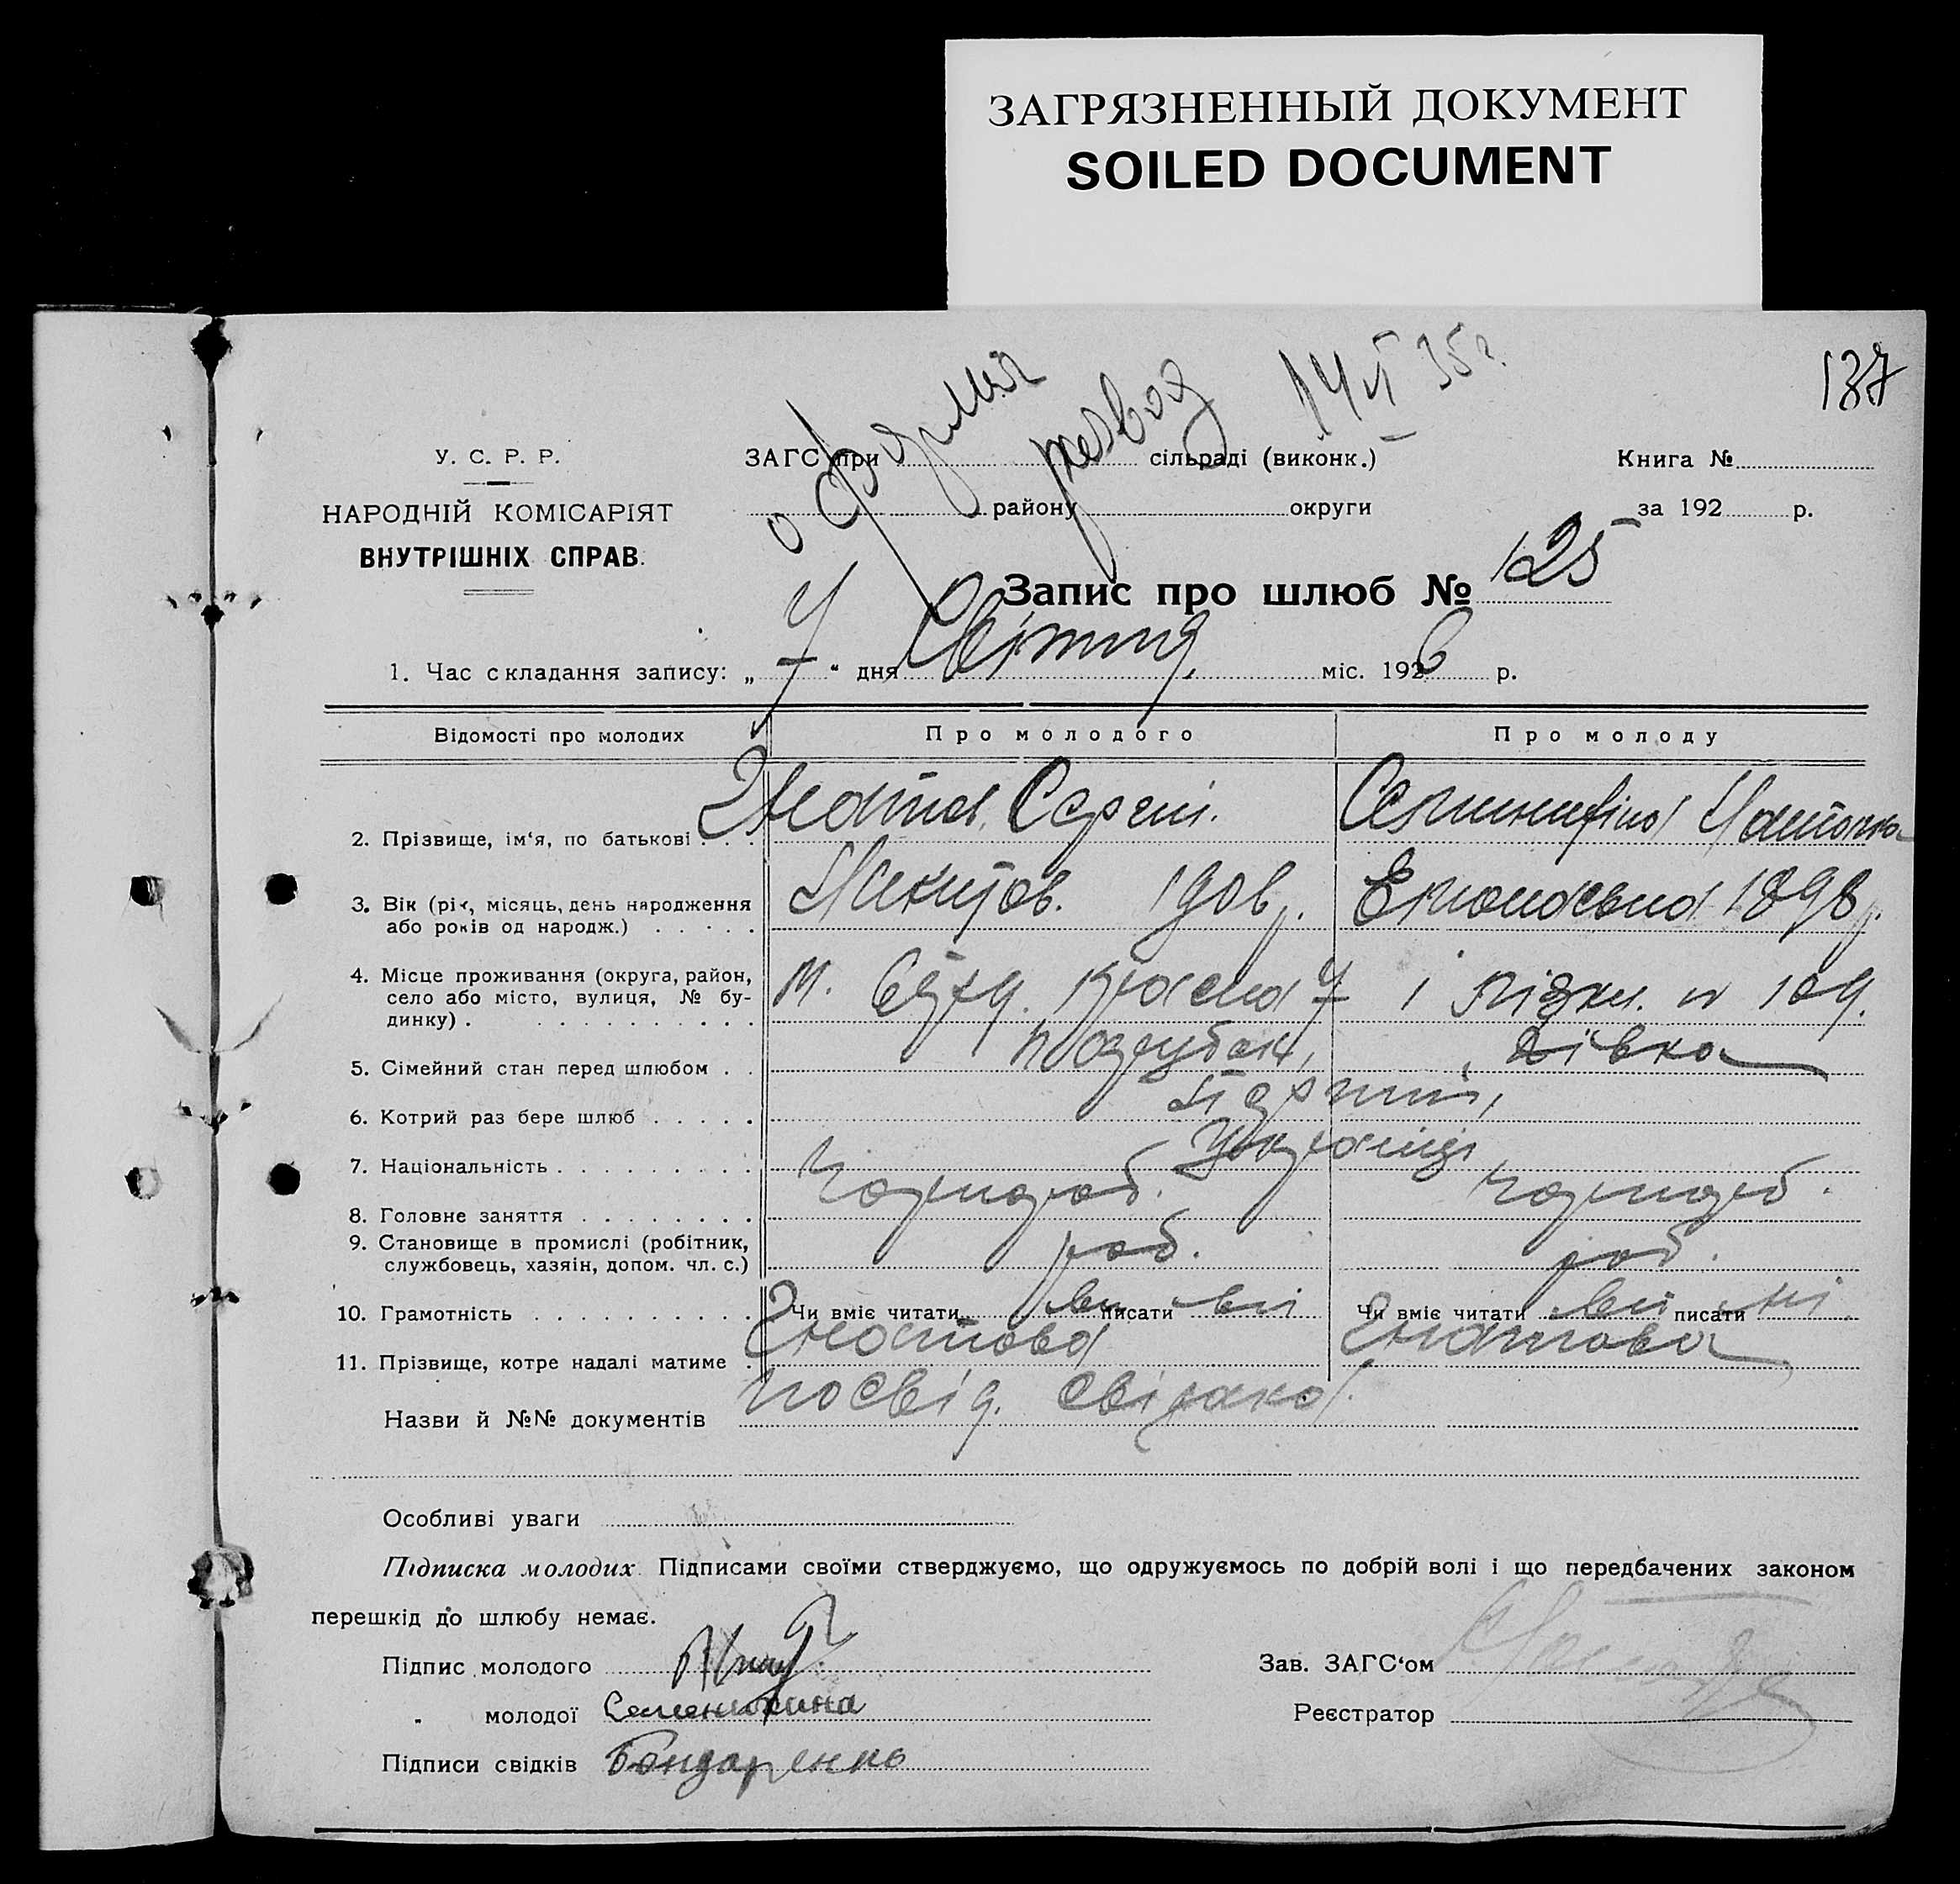 ЗАГРЯЗНЕННЫЙ ДОКУМЕНТ
SOILED DOCUMENT
137
оформлен развод 14 VI 35 г.
У. С. Р. Р.
НАРОДНІЙ КОМІСАРІЯТ
ВНУТРІШНІХ СПРАВ.
ЗАГС при сільраді (виконк.)
району округи
Книга №
за 192 р.
Запис про шлюб № 125
1. Час складання запису: „ 7 “ дня Квітня міс. 1926 р.
Відомості про молодих Про молодого Про молоду
2. Прізвище, ім‘я, по батькові . . . Гнатов Сергій.
3. Вік (рік, місяць, день народження
або років од народж.) . . . . . Микитов. 190 р. 1898 р.
4. Місце проживання (округа, район,
село або місто, вулиця, № бу-
динку) . . . . . . . . . . . м. 7 і
5. Сімейний стан перед шлюбом . . парубок, дівка
6. Котрий раз бере шлюб . . . . . перший,
7. Національність . . . . . . . . . Українці
8. Головне заняття . . . . . . . . чорнороб. чорнороб.
9. Становище в промислі (робітник,
службовець, хазяїн, допом. чл. с.) роб. роб.
10. Грамотність . . . . . . . . . . Чи вміє читати вм писати вміє Чи вміє читати писати
11. Прізвище, котре надалі матиме . Гнатова Гнатова
Назви й №№ документів посвід. свідків
Особливі уваги
Підписка молодих. Підписами своїми стверджуємо, що одружуємось по добрій волі і що передбачених законом
перешкід до шлюбу немає.
Підпис молодого
Зав. ЗАГС‘ом
„ молодої Семенихина
Реєстратор
Підписи свідків Бондаренко